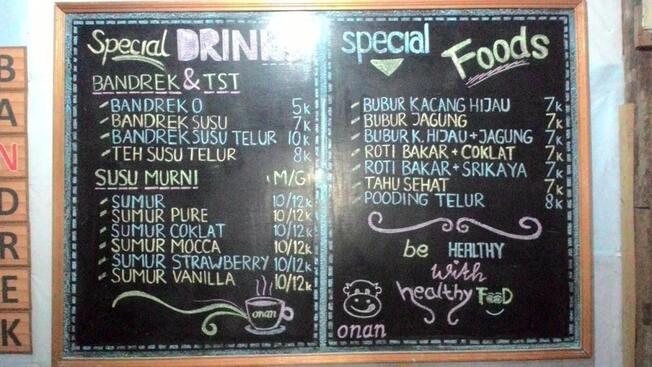 BANDREK
Special DRIN
BANDREK & TST
BANDREK O 5K
BANDREK SUSU 7K
BANDREK SUSU TELUR 10K
TEH SUSU TELUR 8K
SUSU MURNI M/G
SUMUR 10/12K
SUMUR PURE 10/12K
SUMUR COKLAT 10/12K
SUMUR MOCCA 10/12K
SUMUR STRAWBERRY 10/12K
SUMUR VANILLA 10/12K
onan
special Foods
BUBUR KACANG HIJAU 7K
BUBUR JAGUNG 7K
BUBUR K. HIJAU + JAGUNG 7K
ROTI BAKAR + COKLAT 7K
ROTI BAKAR + SRIKAYA 7K
TAHU SEHAT 7K
POODING TELUR 8K
be HEALTHY
with
healthy FOOD
onan